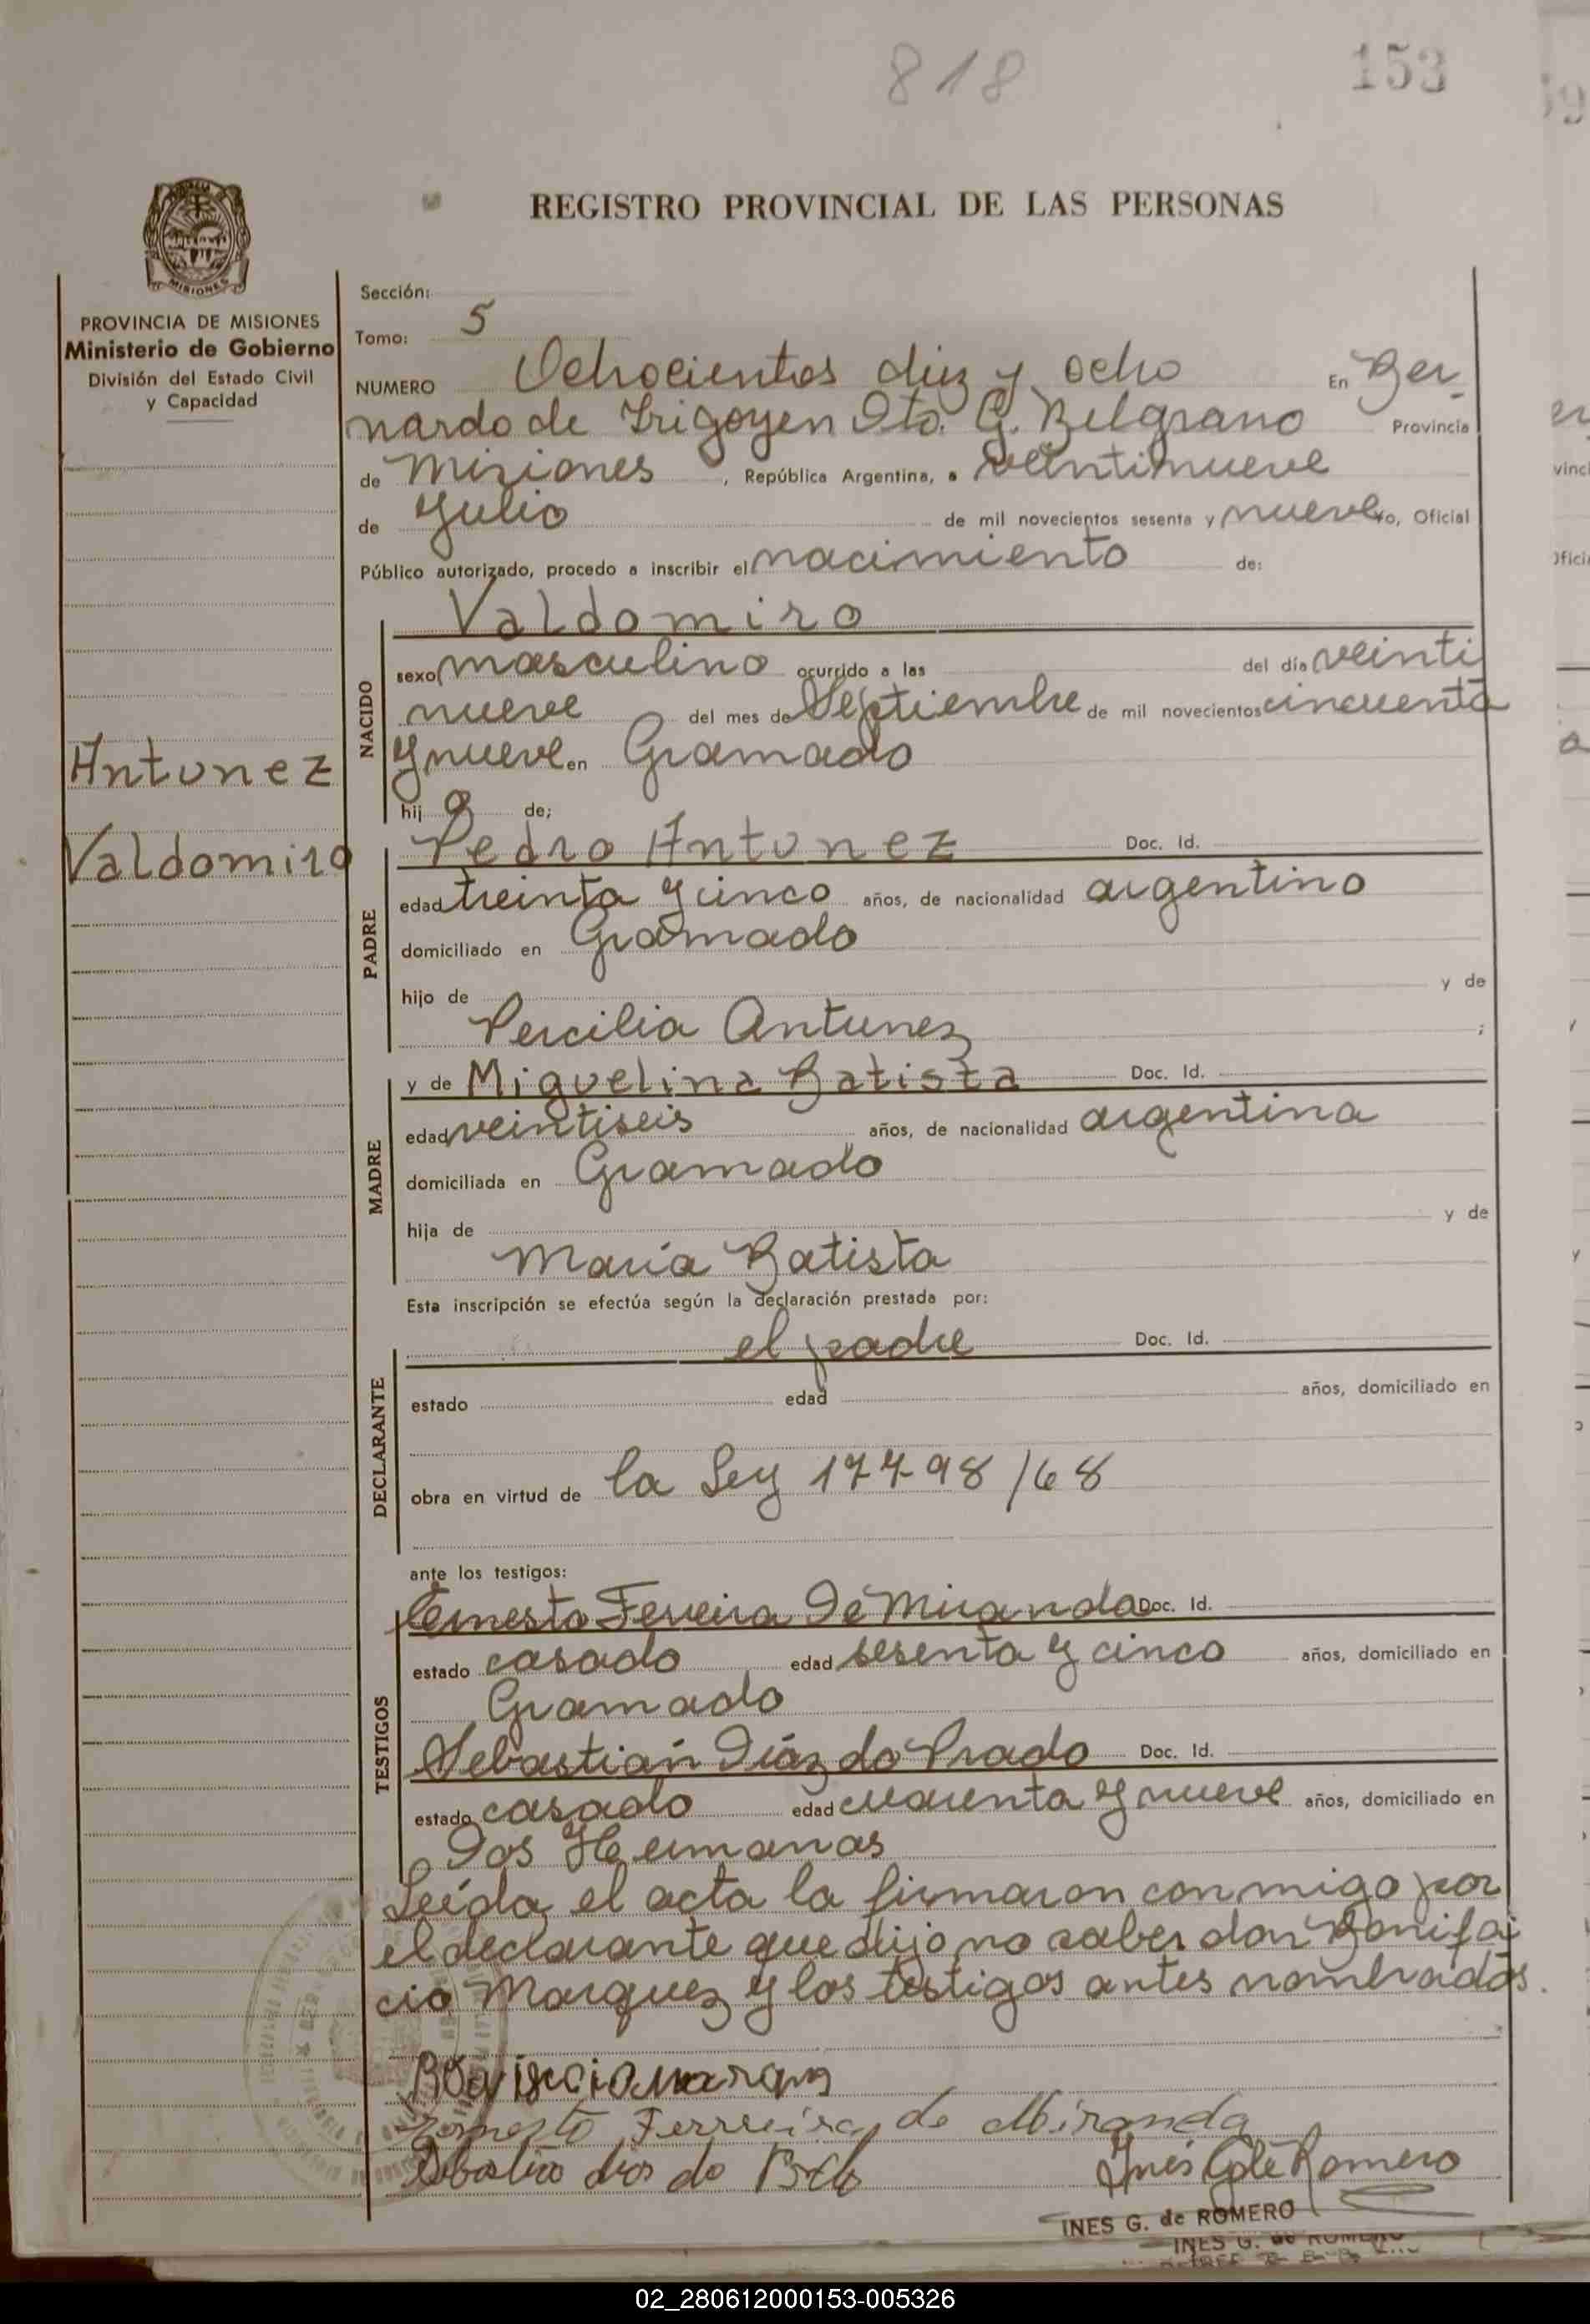 818
153
REGISTRO PROVINCIAL DE LAS PERSONAS
MISIONES
PROVINCIA DE MISIONES
Ministerio de Gobierno
División del Estado Civil
y Capacidad
Antunez
Valdomiro
Sección:
Tomo: 5
NUMERO Ochocientos diez y ocho En Ber-
nardo de Irigoyen Dto. G. Belgrano Provincia
de Misiones, República Argentina, a veintinueve
de Julio de mil novecientos sesenta y nueve yo, Oficial
Público autorizado, procedo a inscribir el nacimiento de:
NACIDO
Valdomiro
sexo masculino ocurrido a las del día veinti
nueve del mes de Septiembre de mil novecientos cincuenta
y nueve en Gramado
hijo de;
PADRE
Pedro Antunez Doc. Id.
edad treinta y cinco años, de nacionalidad argentino
domiciliado en Gramado
hijo de y de
Percilia Antunez ;
MADRE
y de Miguelina Batista Doc. Id.
edad veintiseis años, de nacionalidad argentina
domiciliada en Gramado
hija de y de
María Batista
Esta inscripción se efectúa según la declaración prestada por:
DECLARANTE
el padre Doc. Id.
estado edad años, domiciliado en
obra en virtud de la Ley 17798/68
ante los testigos:
TESTIGOS
Ernesto Ferreira De Miranda Doc. Id.
estado casado edad sesenta y cinco años, domiciliado en
Gramado
Sebastián Díaz do Prado Doc. Id.
estado casado edad cuarenta y nueve años, domiciliado en
Dos Hermanas
Leída el acta la firmaron conmigo por
el declarante que dijo no saber don Bonifa
cio Marquez y los testigos antes nombrados.
Ernesto Ferreira de Miranda
Inés G. de Romero
INES G. de ROMERO
INES G. de ROMERO
02_280612000153-005326